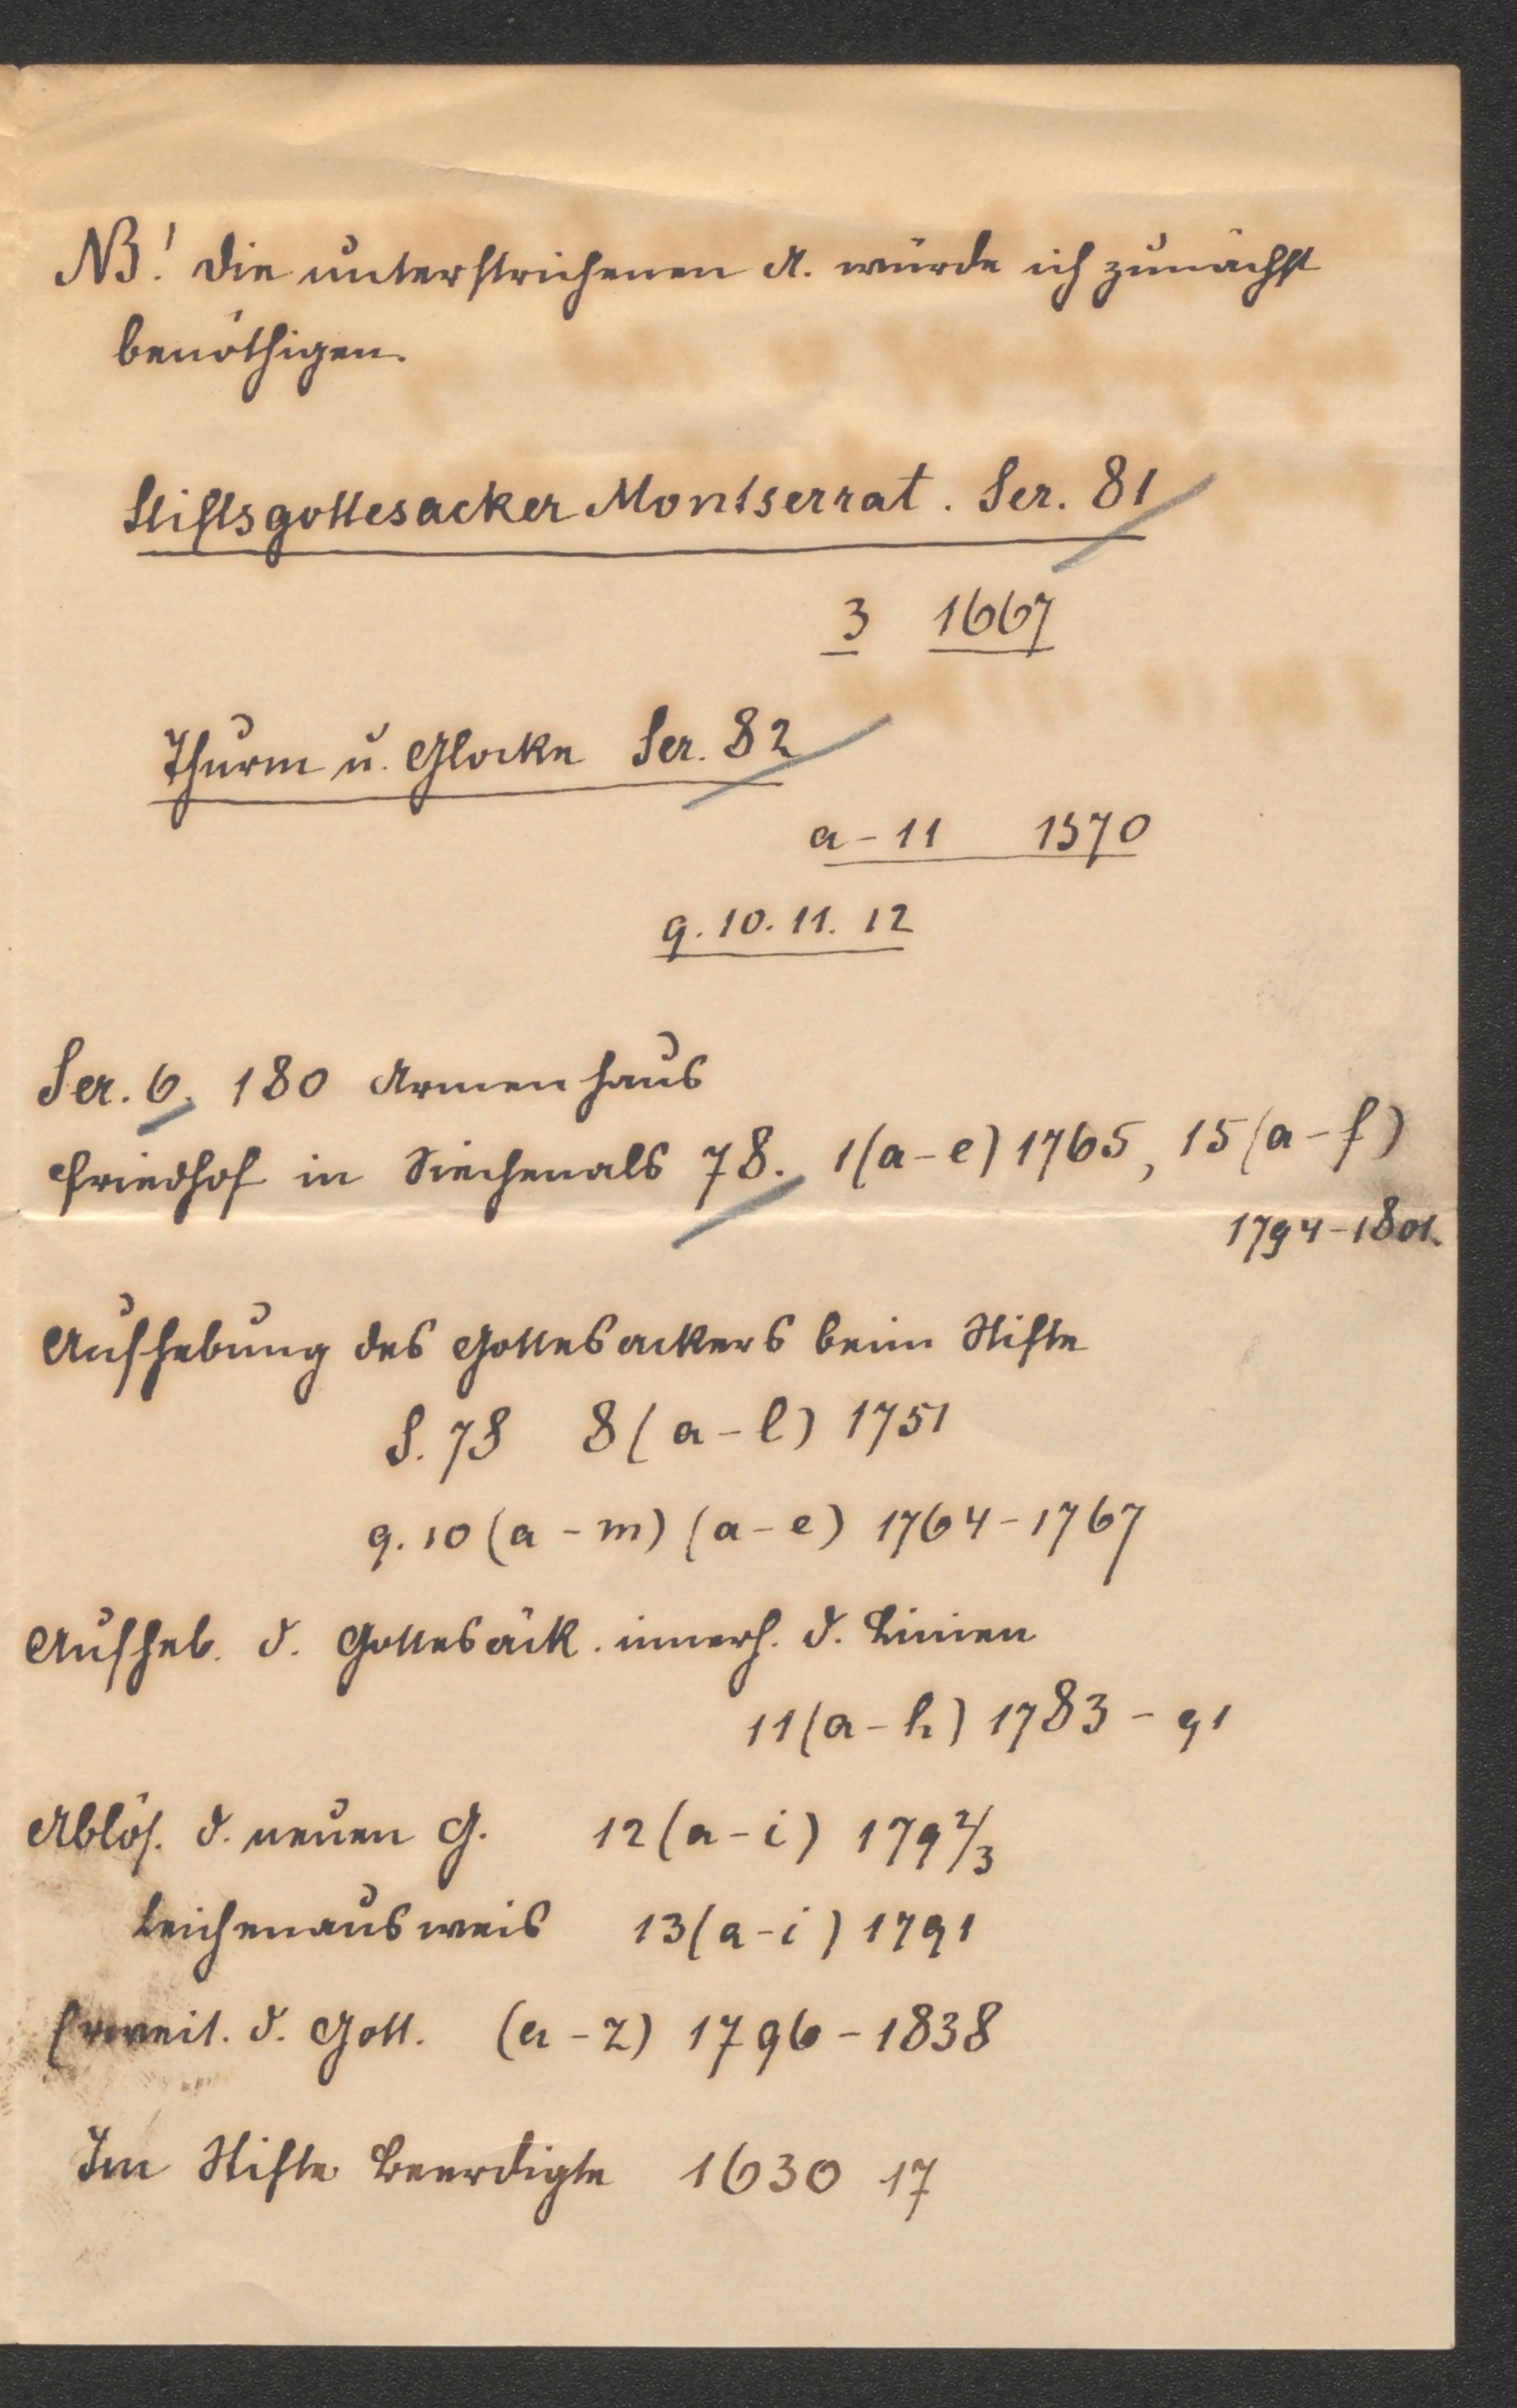 NB! Die unterstrichenen A. würde ich zunächst
benöthigen.
Stiftsgottesacker Montserrat. Ser. 81
3 1667
Thurm u. Glocke Ser. 82
a - 11 1570
9. 10. 11. 12
Ser. 6. 180 Armenhaus
Friedhof in Siechenals 78. 1(a-e) 1765, 15(a-f)
1794-1801.
Aufhebung des Gottesackers beim Stifte
S. 78 8(a-l) 1751
9. 10 (a-m) (a-e) 1764-1767
Aufheb. d. Gottesäck. innerh. d. Linien
11(a-h) 1783-91
Ablös. d. neuen G. 12(a-i) 1792/3
Leichenausweis 13(a-i) 1791
Erweit. d. Gott. (a-z) 1796-1838
Im Stifte Beerdigte 1630 17